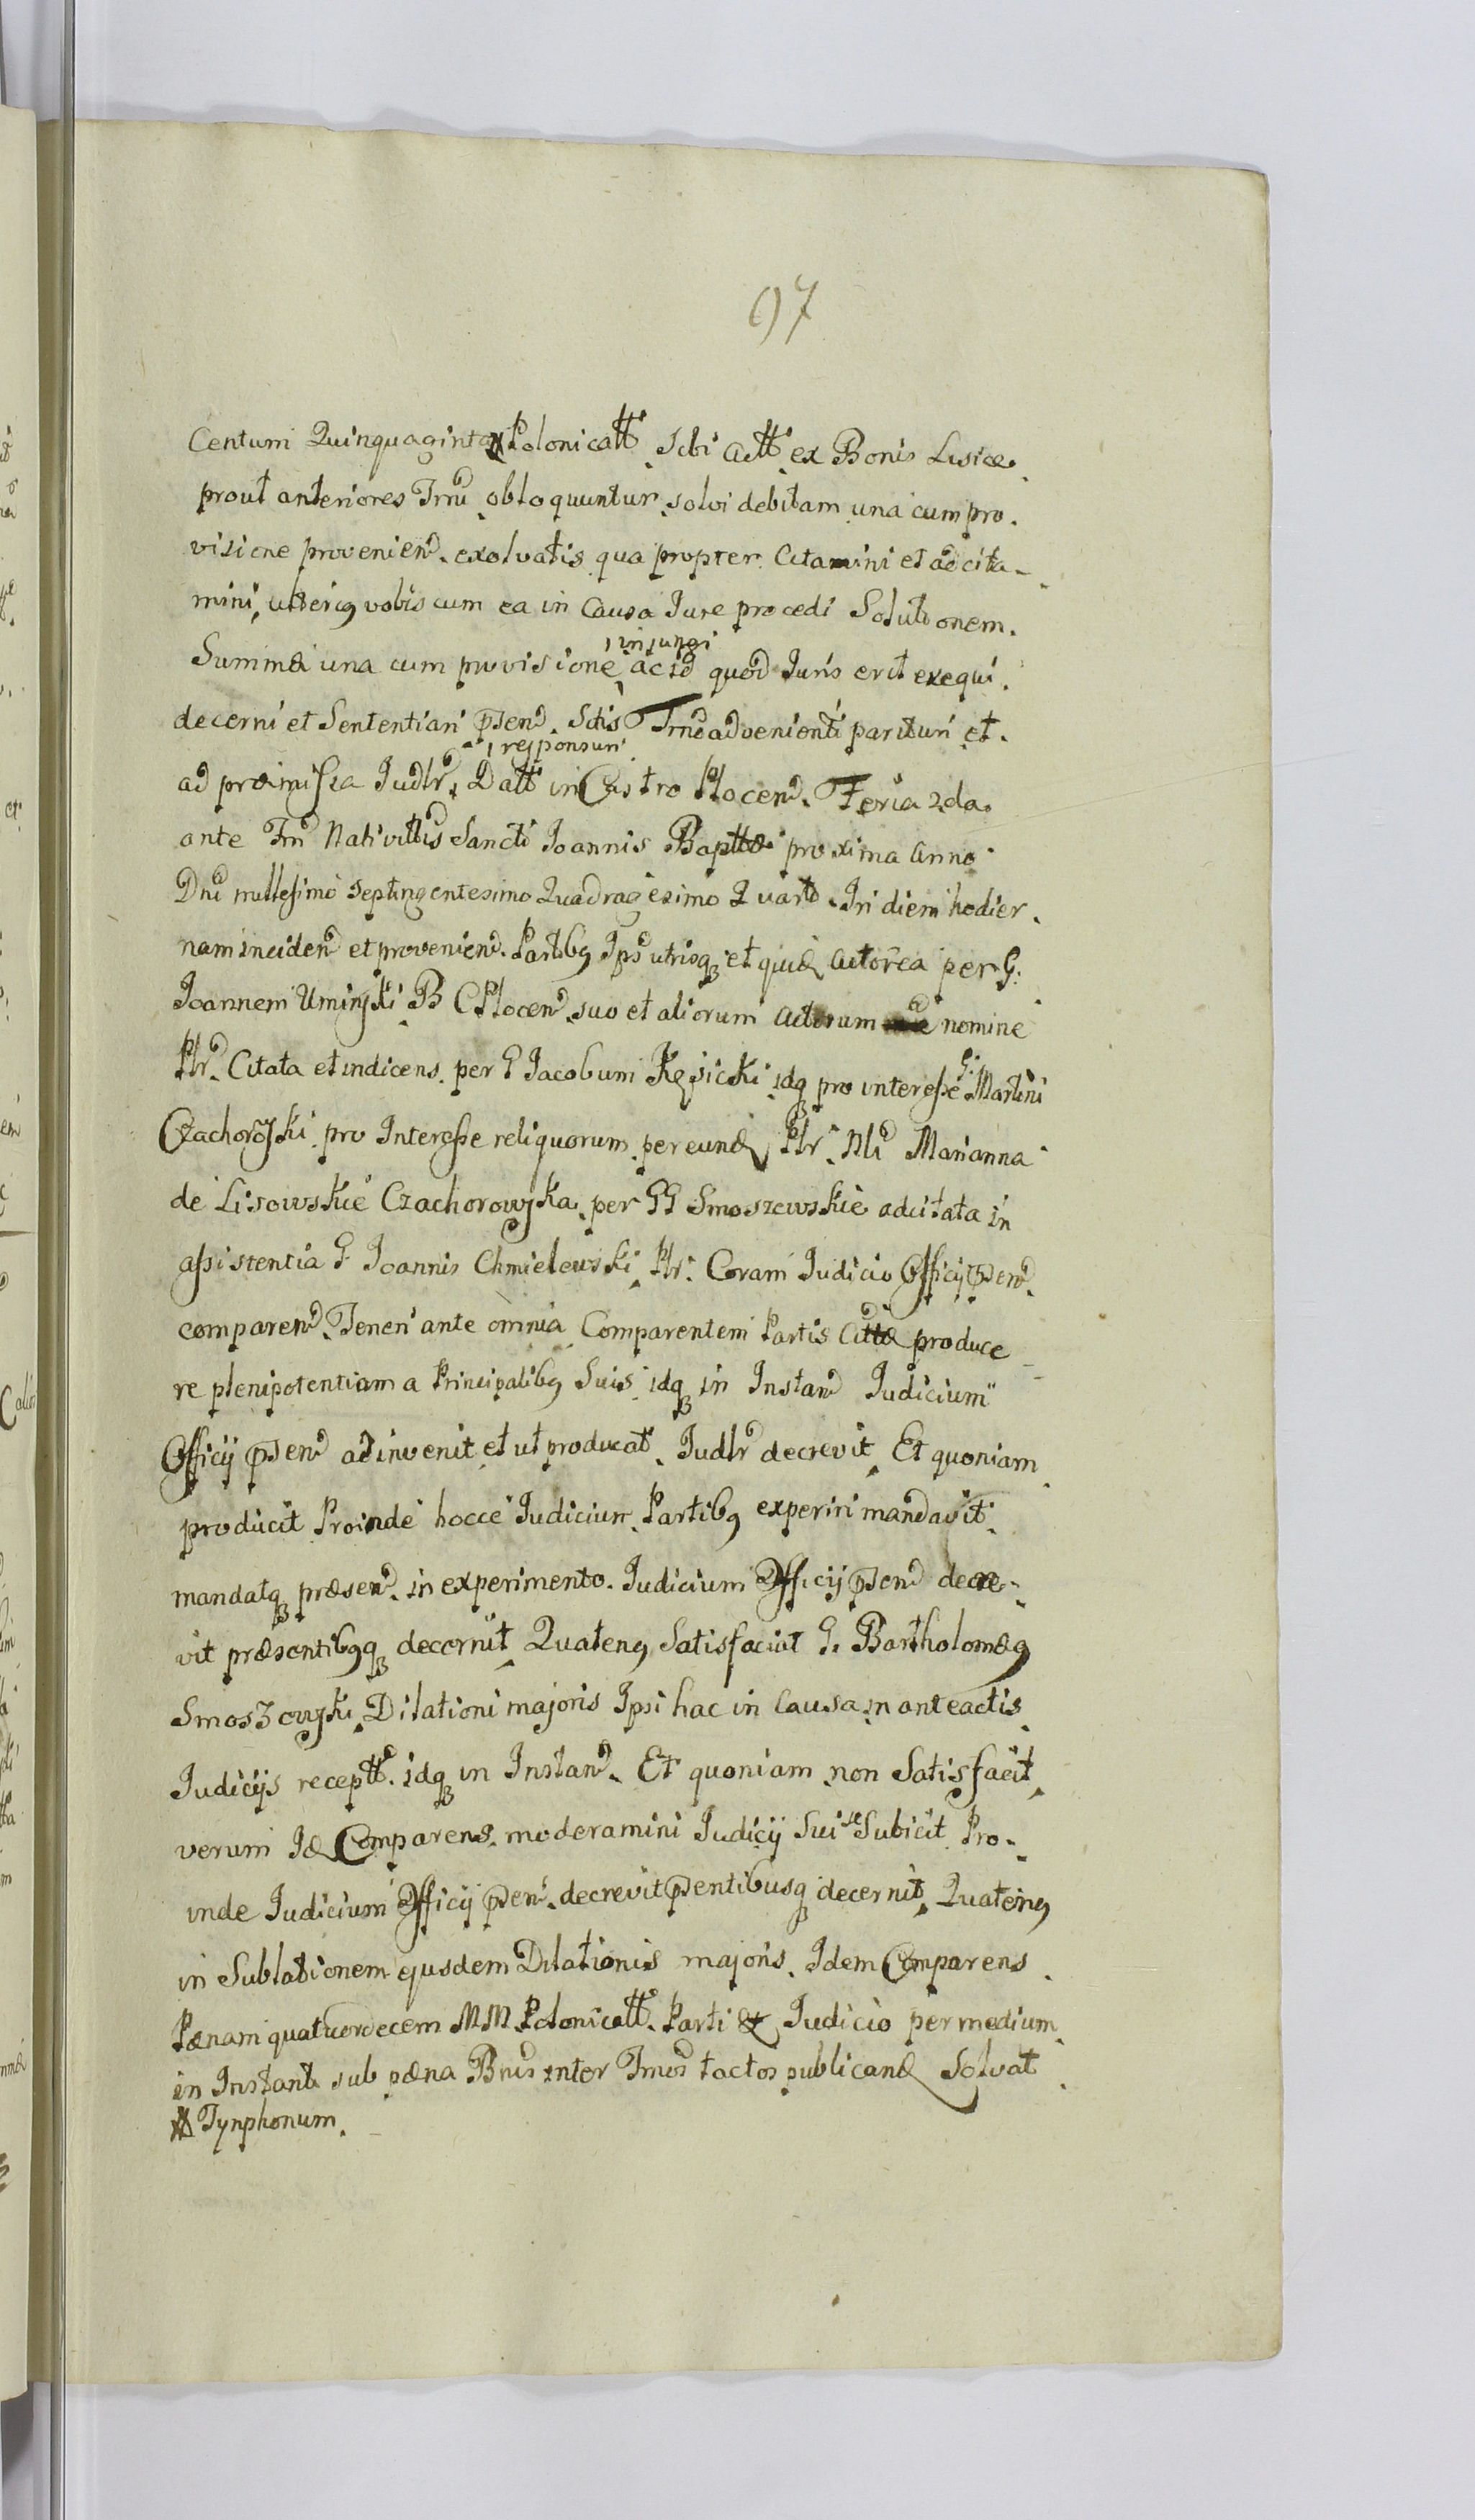 97
Centum Quinquaginta Polonicatt Sibi Actt ex Bonis Lisice
prout anteriores Trnu obloquuntur solvi debitam una cum pro.
visione provenien exolvatis qua propter Citamini et adcita-
mini, ulterig vobiscum ea in Causa Jure procedi Solutionem.
injungi
Summæ una cum provisione ac id quod Juris erit exequi.
decerni et Sententiari psen. Sctis Trnō advenienti parituri et.
responsuri
ad præmissa Judlr. Datt in Castro Plocen. Feria 2da.
ante Frn Nativittis Sancti Joannis Bapttæ proxima Anno
Dni millesimo Septingentesimo Quadragesimo Quarto. In diem hodier.
nam inciden et provenien. Partibg Ips utrisq et quid Actorea per G.
Joannem Uminski B C Plocen suo et aliorum Actorum nomine
Plr. Citata et indicens per G Jacobum Kęsicki idq pro interesse G. Martini
Czachorowski pro Interesse reliquorum per eund Plr. Mli Marianna
de Lisowskie Czachorowska per GG Smoszewskie adcitata in
assistentia G Joannis Chmielewski Plr. Coram Judicio Officij psen
comparen. Teneri ante omnia Comparentem Partis Cittæ produce
re plenipotentiam a Principalibg Suis idq in Instan Judicium
Officij psen adinvenit et ut producat Judlr decrevit Et quoniam
producit Proinde hocce Judicium Partibg experiri mandavit
mandatq præsen. in experimento. Judicium Officij psen decre-
vit præsentibgq decernit Quateng Satisfaciat G. Bartholomæg
Smoszowski Dilationi majoris Ipsi hac in Causa in anteactis
Judicijs receptt. idq in Instan. Et quoniam non Satisfacit
verum Id Comparens moderamini Judicij Sui se Subicit Pro-
inde Judicium Officij psen. decrevit psentibusq decernit Quateng
in Sublationem ejusdem Dilationis majoris Idem Comparens
Pænam quatuordecem MM Polonicatt. Parti & Judicio per medium
in Instanti sub pæna Bnis inter Trnos tactos publicand Solvat
Tynphonum.